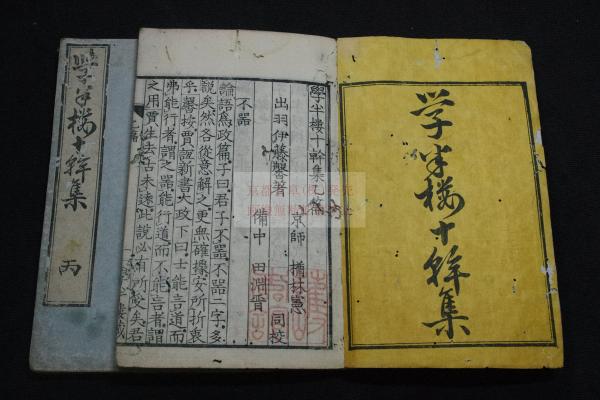 学半楼十幹集
學半樓十幹集乙篇
出羽伊藤馨著
京師 橋林憲
備中 田淵晋 同校
不器
論語爲政篇子曰君子不器不器二字多
說矣然各從意解之更無確據安所折衷
乎馨按賈誼新書大政下曰士能言道而
弗能行者謂之器能行道而不能言者謂
之用賈生去古未遠此說必有所受矣君
学半楼十幹集 丙